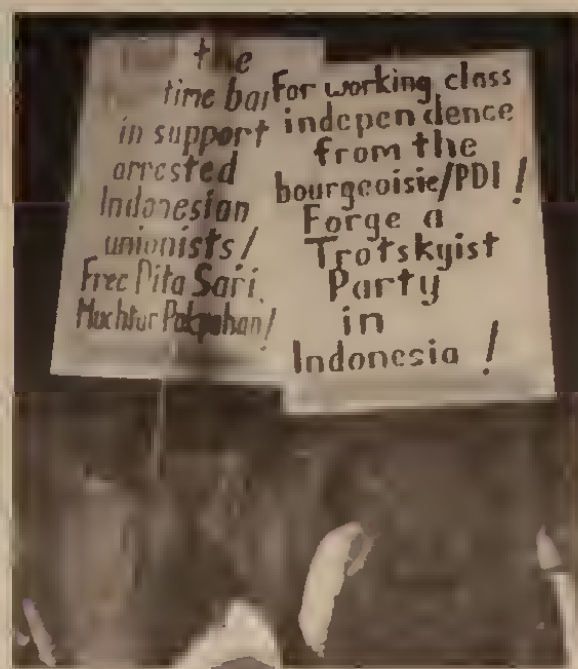 the
time ba
in support
arrested
Indonesian
unionists/
Free Dita Sari,
Muchtar Pakpahan!
For working class
independence
from the
bourgeoisie/PDI!
Forge a
Trotskyist
Party
in
Indonesia!